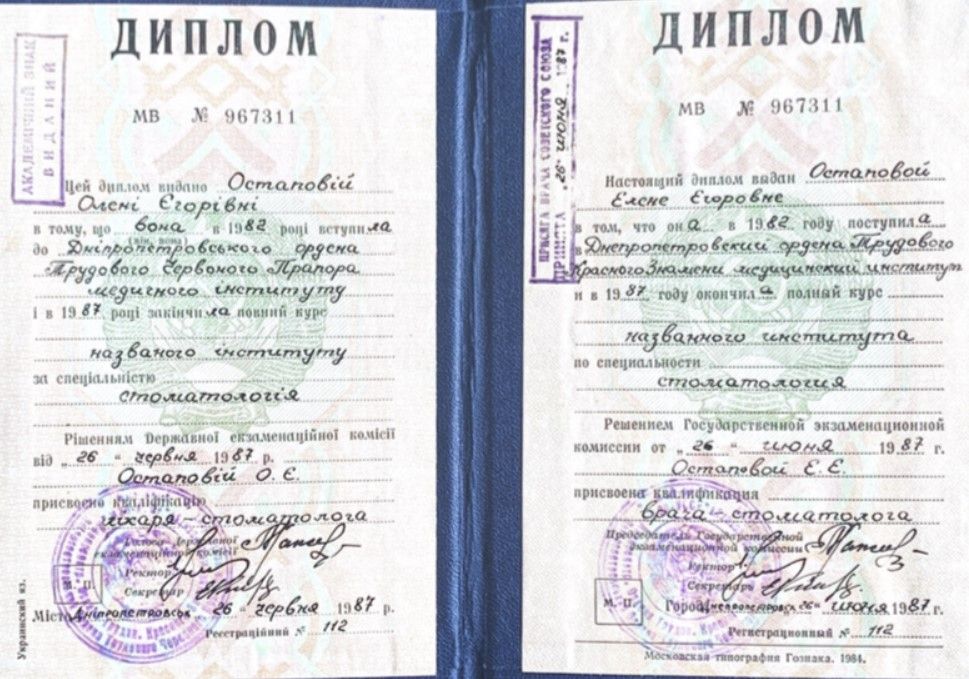 ДИПЛОМ
АКАДЕМИЧНИЙ ЗНАК
ВИДАНИЙ
МВ № 967311
Цей диплом видано Остаповій
Олені Єгорівні
в тому, що вона в 1982 році вступила
(він, вона)
до Дніпропетровського ордена
Трудового Червоного Прапора
медичного інституту
і в 1987 році закінчила повний курс
названого інституту
за спеціальністю
стоматологія
Рішенням Державної екзаменаційної комісії
від „26“ червня 1987 р.
Остаповій О. Є.
присвоєно кваліфікацію
лікаря-стоматолога
Голова Державної
екзаменаційної комісії
Ректор
Секретар
М. П.
Місто Дніпропетровськ 26 " червня 1987 р.
Реєстраційний № 112
Украинский яз.
ДИПЛОМ
ПРИСЯГА ВРАЧА СОВЕТСКОГО СОЮЗА
ПРИНЯТА „26" июня 1987 г.
МВ № 967311
Настоящий диплом выдан Остаповой
Елене Егоровне
в том, что она в 1982 году поступила
в Днепропетровский ордена Трудового
Красного Знамени медицинский институт
и в 1987 году окончила полный курс
названного института
по специальности
стоматология
Решением Государственной экзаменационной
комиссии от „26“ июня 1987 г.
Остаповой Е. Е.
присвоена квалификация
врача-стоматолога
Председатель Государственной
экзаменационной комиссии
Ректор
Секретарь
М. П.
Город Днепропетровск „26“ июня 1987 г.
Регистрационный № 112
Московская типография Гознака. 1984.